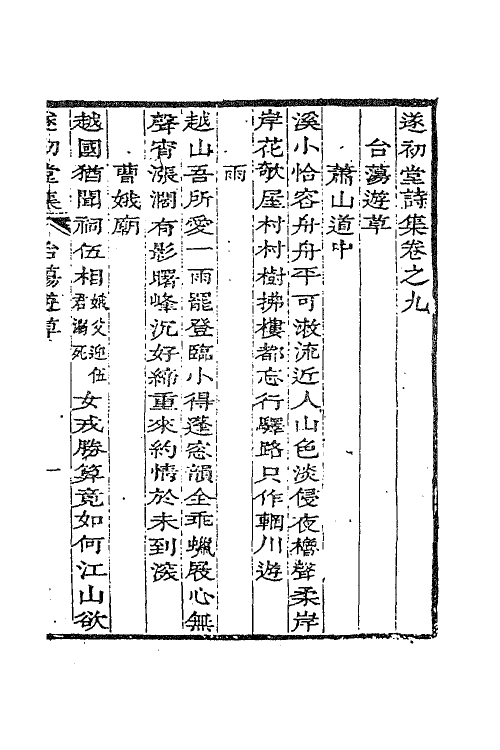 遂初堂詩集卷之九
台蕩遊草
蕭山道中
溪小恰容舟舟平可漱流近人山色淡侵夜櫓聲柔岸
岸花欹屋村村樹拂樓都忘行驛路只作輞川遊
雨
越山吾所愛一雨罷登臨小得蓬窓韻全乖蠟屐心無
聲宵漲澗有影曙峰沉好締重來約情於未到深
曹娥廟
越國猶聞祠伍相娥父迎伍君溺死女戎勝算竟如何江山欲
遂初堂集 台蕩遊草 一